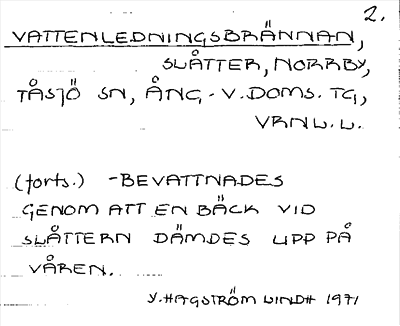 2.
VATTENLEDNINGSBRÄNNAN,
SLÅTTER, NORRBY,
TÅSJÖ SN, ÅNG.-V.DOMS. TG,
VRNL.L.
(forts.) -BEVATTNADES
GENOM ATT EN BÄCK VID
SLÅTTERN DÄMDES UPP PÅ
VÅREN.
Y.HAGSTRÖM LINDH 1971